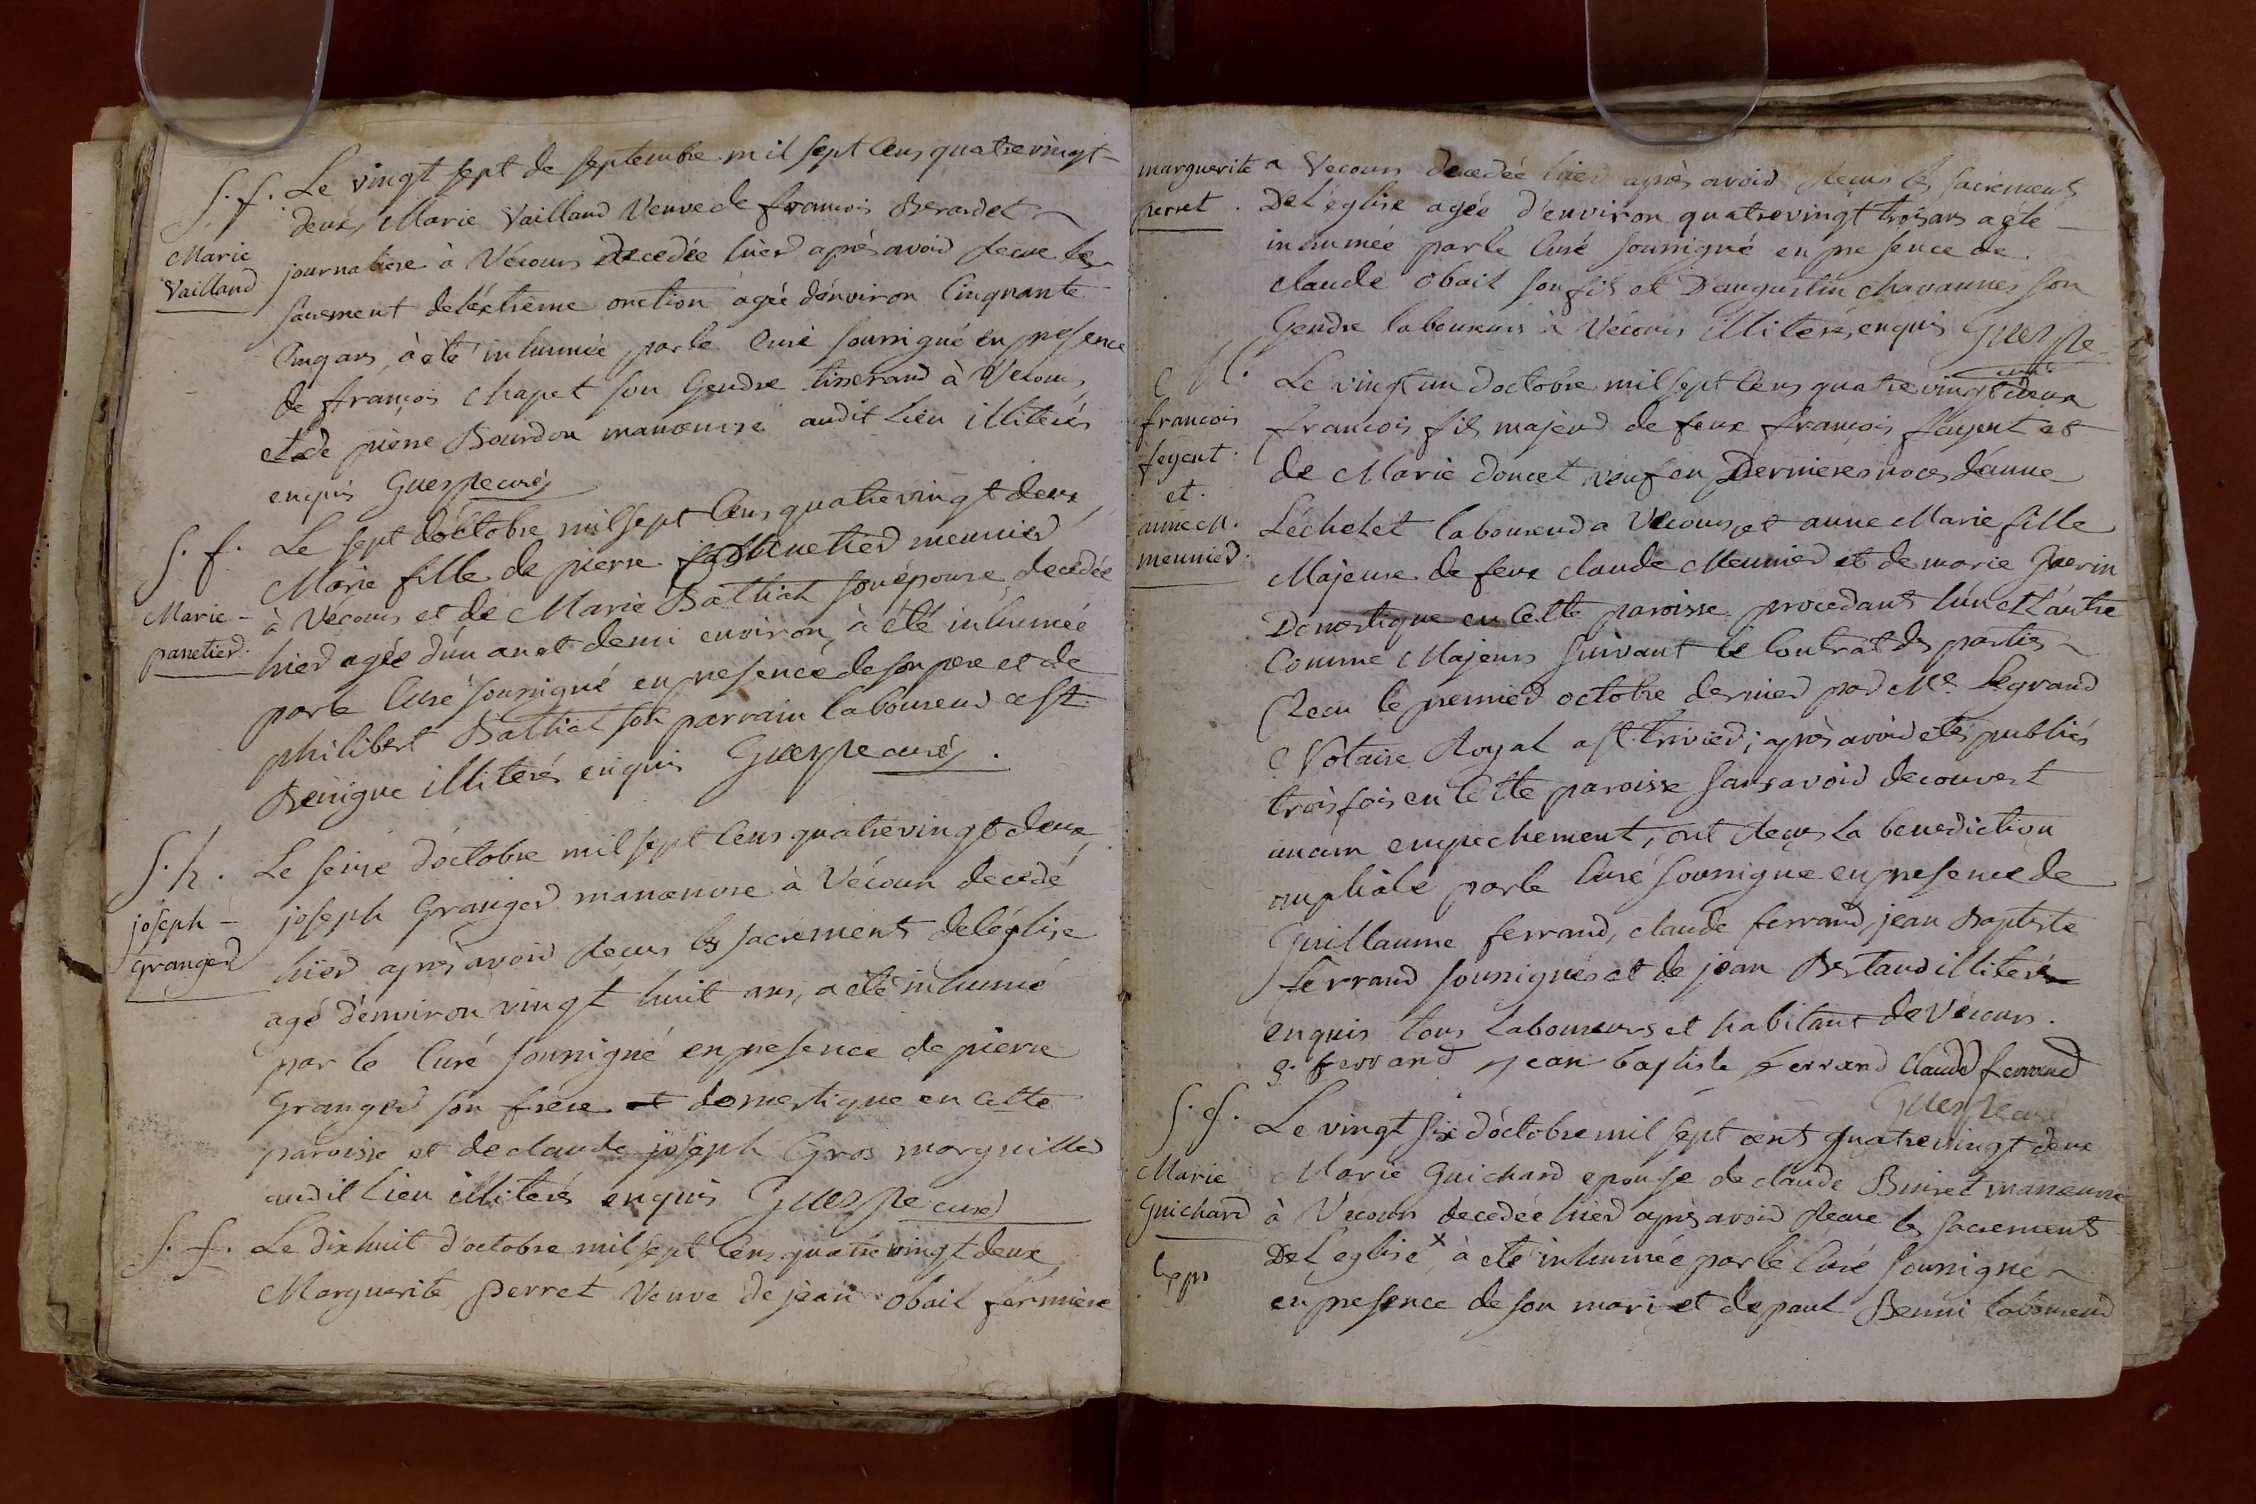 S. f. Le vingt sept de septembre mil sept Cens quatre vingt
deux, Marie Vailland Veuve de françois Berardet
Marie journaliere à Vécours decedée hier après avoir recue le
Vailland sacrement de léxtrême onction agée d'environ Cinquante
Cinq ans, à été inhumée par le Curé soussigné en presence
de françois Chapet son Gendre tisserand à Vecours,
et de pierre Bourdon manœuvre audit Lieu illiterés
enquis Guespe curé
S. f. Le sept d'octobre mil sept Cens quatre vingt deux,
Marie fille de pierre panetier meunier
Marie à Vécours et de Marie Bathiat son épouse decedée
panetier. hier agée d'un an et demi environ, à été inhumée
par le Curé soussigné en presence de son pere et de
philibert Bathiat son parrain laboureur a St
Benigne illiterés enquis Guespe curé.
S. h. Le seize d'octobre mil sept Cens quatre vingt deux,
joseph joseph Granger manœuvre à Vécour decedé
Granger hier après avoir recus les sacrements de léglise
agé d'environ vingt huit ans, a été inhumé
par le Curé soussigné en presence de pierre
Granger son frere et domestique en cette
paroisse et de claude joseph Gros marguiller
audit lieu illiterés enquis Guespe curé
S. f. Le dix huit d'octobre mil sept Cens quatre vingt deux
Marguerite perret Veuve de jean obait fermiere
marguerite a Vecours decedée hier après avoir recus les sacrements
perret. De l'église agée d'environ quatre vingt trois ans a été
inhumée par le Curé soussigné en presence de
claude obait son fils et D'augustin chavannes son
Gendre laboureurs à Vécours illiterés, enquis Guespe
curé
M. Le vingt un d'octobre mil sept Cens quatre vingt deux
francois francois fils majeur de feux françois feyent et
feyent. de Marie doucet veuf en Dernieres noces d'anne
et.
anne M. Léchelet laboureur a Vécours, et anne Marie fille
meunier. Majeure de feux claude Meunier et de marie Guerin
Domestique en Cette paroisse. procedants l'un et l'autre
Comme Majeurs suivant le Contrat des parties
Recu le premier octobre dernier par Me. Legrand
Notaire Royal a St. trivier; après avoir etés publiés
trois fois en Cette paroisse sans avoir decouvert
aucun empechement, ont recus la benediction
nuptiale par le Curé soussigné en presence de
Guillaume ferrand, claude ferrand, jean Baptiste
ferrand soussignés et de jean Bertaud illiteré
enquis tous Laboureurs et habitant de Vécours.
g. ferrand jean baptiste ferrand Claude ferrand
Guespe curé
S. f. Le vingt six d'octobre mil sept cent quatre vingt deux
Marie Marie Guichard epouse de claude Buiret manœuvre
Guichard à Vecours decedée hier après avoir recue les sacrements
De L'eglise x à été inhumée par le Curé soussigné
en presence de son mari et de paul Benni laboureur